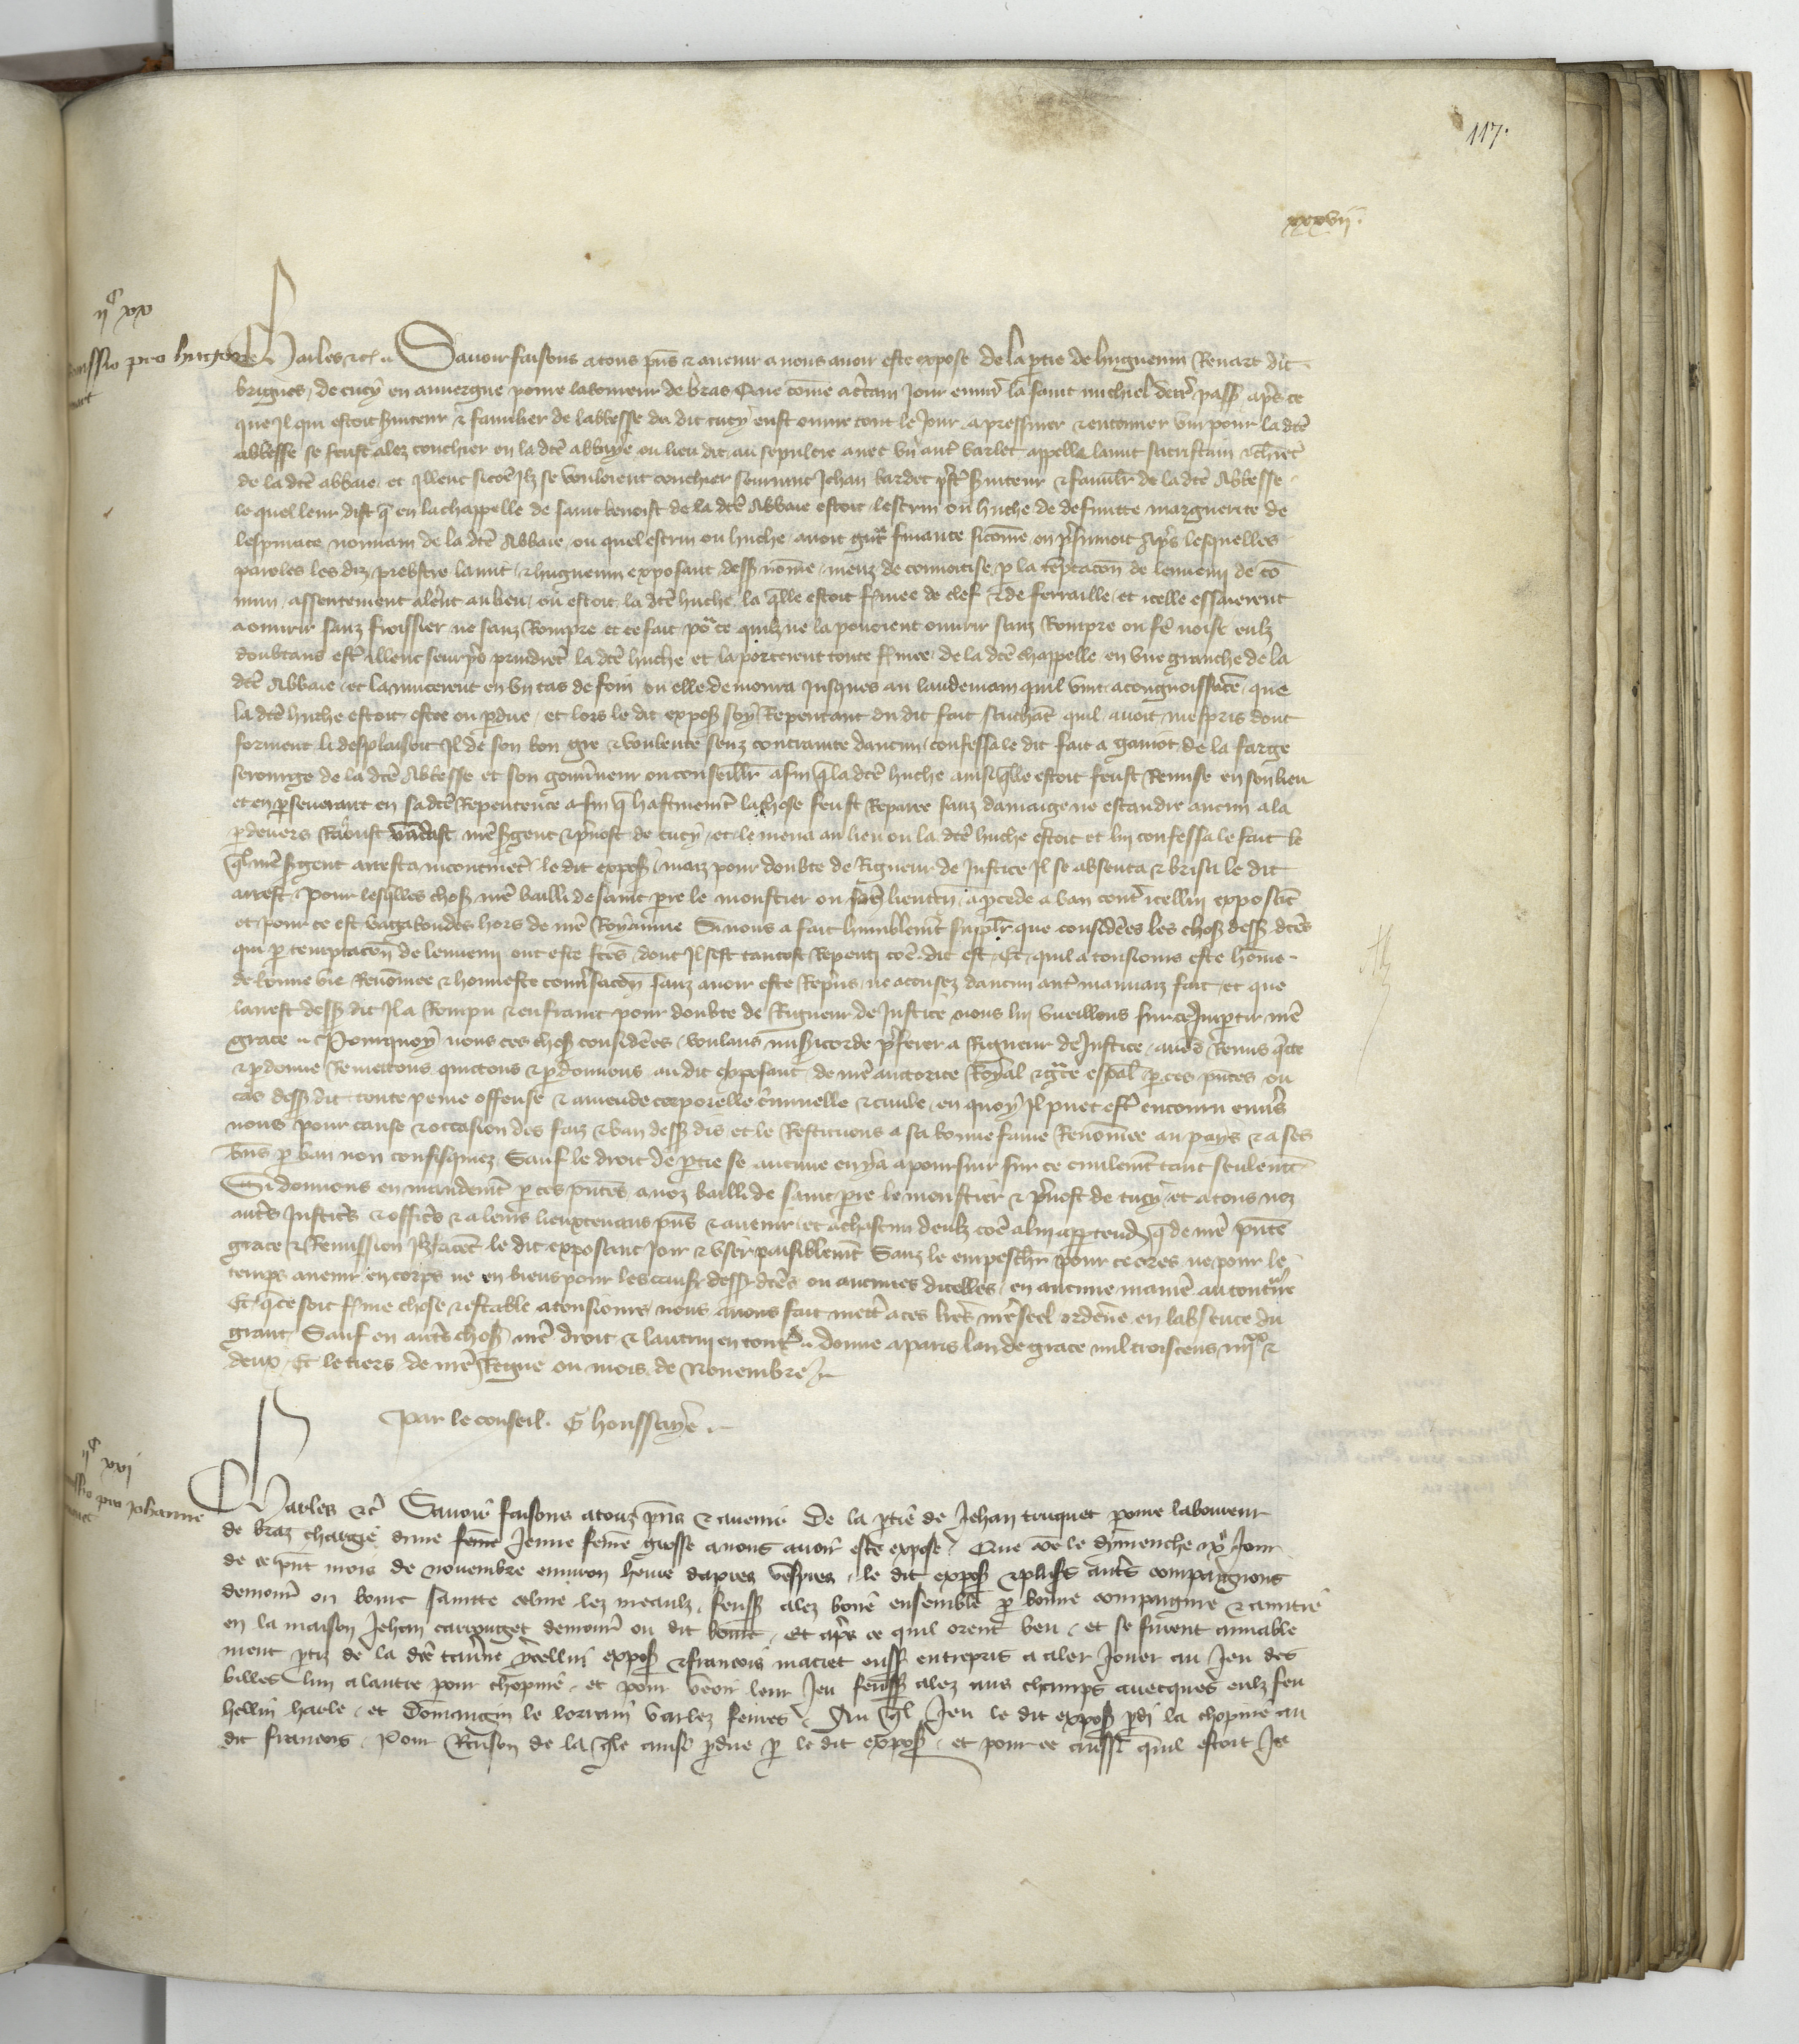 117.
xxxvii.
iic xx
Remissio pro hugone
Renart
Charles etc. Savoir faisons a tous pñs et avenir a nous avoir este expose de la ptie de huguenin Renart dit
brigues, de cucy en auvergne povre laboureur de bras Que cõme a certain jour environ la saint michiel derr̃ pass̃ apr̃s ce
que Il qui estoit s̃viteur et familier de labbesse du dit cucy eust ouvre tout le Jour a pressurer et entonner vin pour la dicte
abbesse se feust alez couchier en la dicte abbaye ou lieu dit au sepulcre avec vn aut̃ varlet appelle
de la dicte abbaie, et Illenc sicõe Ilz se vouloient couchier seurvint Jehan bardet p̃stre s̃viteur et familr̃ de la dicte Abbesse
le quel leur dist q̃ en la chappelle de saint benoist de la dicte Abbaie estoit lescrin ou huche de deffuncte marguerite de
lespinace nonnain de la dicte Abbaie, ou quel escrin ou huche avoit grãt finance sicõme on p̃sumoit Apr̃s lesquelles
paroles les diz prebstre lanuit et huguenin exposant dess̃ nõme, meuz de convoitise, p la temptacõn de lennemi de cõ
mun assentement alerent au lieu ou estoit la dicte huche, la q̃lle estoit f̃mee de clef et de ferraille, et icelle essaierent
a ouvrir sanz froissier ne sanz Rompre, et ce fait po ce quilz ne la povoient ouvrir sanz Rompre ou fẽ noise eulz
doubtans est̃ illenc seurp̃s prindrent la dicte huche et la porterent toute f̃mee de la dicte chappelle en vne granche de la
dicte Abbaie et la mucerent en vn tas de foin ou elle demoura jusques au landemain quil vint a congnoissãce, que
la dicte huche estoit ostee ou pdue, et lors le dit expos̃ soy Repentant du dit fait sachãt quil avoit mespris dont
forment li desplaisoit Il de son bon gre et voulente senz contrainte daucun, confessa le dit fait a gamot de la farge
serourge de la dicte Abbesse et son gouv̾neur ou conseillr̃ afin q̃ la dicte huche ainsi q̃lle estoit feust Remise en son lieu
et en pseverant en sa dicte Repentence afin q̃ hastivement la chose feust Reparee sanz damaige ne escandre aucun ala
p devers Raoust mr̃e s̃gent et p̃vost de cucy, et le mena au lieu ou la dicte huche estoit et lui confessa le fait le
q̃l mr̃e s̃gent arresta incontinẽt le dit expos̃, maiz pour doubte de Rigueur de Justice Il se absenta et brisa le dit
arrest. Pour lesq̃lles chos̃ mr̃e bailli de saint pre le moustier ou son lieuten̾ a pcede a ban contr̃ icellui exposant
et pour ce est vagabondes hors de mr̃e Royaume Si nous a fait humblemt̃ supplr̃ que considerees les chos̃ dess̃ dictes
qui p temptacõn de lennemi ont este fctes, dont Il sest tantost Repenti cõe dit est, Et quil a tousiours este hõme
de bonne vie Renõmee et honneste convsacõn sanz avoir este Repris ne acusez daucun aut̃ mauvaiz fait, et que
larrest dess̃ dit Il a Rompu et enfraint pour doubte de Rigueur de Justice nous lui vueillons sur ce Impertir mr̃e
grace. Pourquoy nous ces chos̃ considerees, voulans mis̃icorde p̃ferer a Rigueur de Justice, avõs Remis q̃tte
et pdonne Remettons quictons et pdonnons au dit exposant de mr̃e auctorite Royal et grãce espãl p ces pñtes ou
cas dess̃ dit toute peine offense et amende corporelle c̃minelle et civile, en quoy Il puet est̃ encouru envers
nous pour cause et occasion des faiz et ban dess̃ dis et le Restituons a sa bonne fame Renõmee au pays et a ses
biens p ban non confisquiez. Sauf le droit de ptie se aucune en y a a poursuir sur ce civilemt̃ tant seulemt̃
Si donnons en mandemt̃ p ces pñtes a noz bailli de saint pre le moustier et p̃vost de cucy, et a touz noz
aut̃s Justic̃s et offic̃s et a leurs lieuxtenans pñs et avenir et a chascun deulz cõe a lui aptendr̃ q̃ de mr̃e pñte
grace et Remission Ilz facent le dit exposant Joir et vser paisiblemt̃ Sanz le empeschr̃ pour ce ores ne pour le
temps avenir en corps ne en biens pour les causes dess̃ dictes ou aucunes dicelles en aucune manie au contr̃e
Et q̃ ce soit f̃me chose et estable a tousiours nous avons fait mettr̃ a ces l̃res mr̃e seel ordene en labsence du
grant Sauf en aut̃s chos̃ mr̃e droit et lautrui en toutes. donne a paris lan de grace mil trois cens iiijxx et
deux, Et le tiers de mr̃e Regne ou mois de Novembre.
Par le conseil. G houssaye
iic xxi
Remissio pro Johanne
truquet
Charles etc. Savoir faisons a touz pñs et avenir De la ptie de Jehan truquet povre laboureur
de braz chargie dune feme Jeune feme grosse a nous avoir este expose. Que cõe le dymenche xve Jour
de ce pñt mois de novembre environ heure dapres vespres, le dit expos̃ et plus̃s aut̃s compaignons
demour̃ ou bourc sainte celine lez meaulz, feuss̃ alez boire ensemble p bonne compaignie et amitie
en la maison Jehan demour̃ ou dit bourc, Et apr̃s ce quil orent beu, et se furent amiable
ment ptiz de la dicte taverne ycellui expos̃ et francois maciet euss̃ entrepris a aler Jouer au Jeu des
billes lun a lautre pour chopine, et pour veoir leur Jeu feuss̃ alez aus champs avecques eulz feu
hellin harle, et Domangin le lorrain varlez fevres. Au q̃l Jeu le dit expos̃ pdi la chopine au
dit francois, Pour Raison de la q̃le cause pdue p le dit expos̃, et pour ce aussi quil estoit Ja